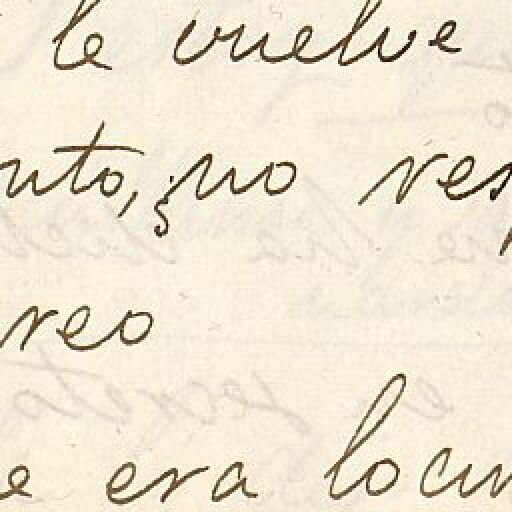 le vuelve
nto, ¿no res
reo
e era locu